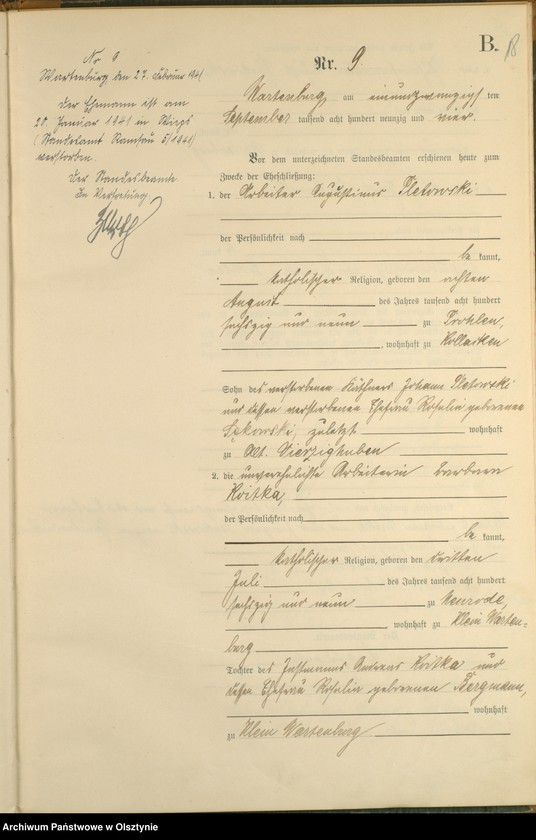 B.
Nr. 9
Wartenburg den 27. Februar 1941
Der Ehemann ist am
20. Januar 1941 in
(Standesamt Ramsau 5/1941)
verstorben.
Der Standesbeamte
In Vertretung
Nr. 9
Wartenburg am einundzwanzigsten
September tausend acht hundert neunzig und vier.
Vor dem unterzeichneten Standesbeamten erschienen heute zum
Zwecke der Eheschließung:
1. der Arbeiter Augustinus Pletowski
der Persönlichkeit nach
be kannt,
katholischer Religion, geboren den achten
August des Jahres tausend acht hundert
sechszig und neun zu Prohlen,
, wohnhaft zu Kollacken
Sohn des verstorbenen Käthners Johann Pletowski
und dessen verstorbenen Ehefrau Rosalia geborenen
zuletzt wohnhaft
zu Alt. Vierzighuben
2. die unverehelichte Arbeiterin Barbara
Koitka,
der Persönlichkeit nach
be kannt,
katholischer Religion, geboren den dritten
Juli des Jahres tausend acht hundert
sechszig und neun zu Neurode,
, wohnhaft zu Klein Warten=
burg
Tochter des Instmanns Andreas Koitka und
dessen Ehefrau Rosalia geborenen Bergmann,
wohnhaft
zu Klein Wartenburg
Archiwum Państwowe w Olsztynie